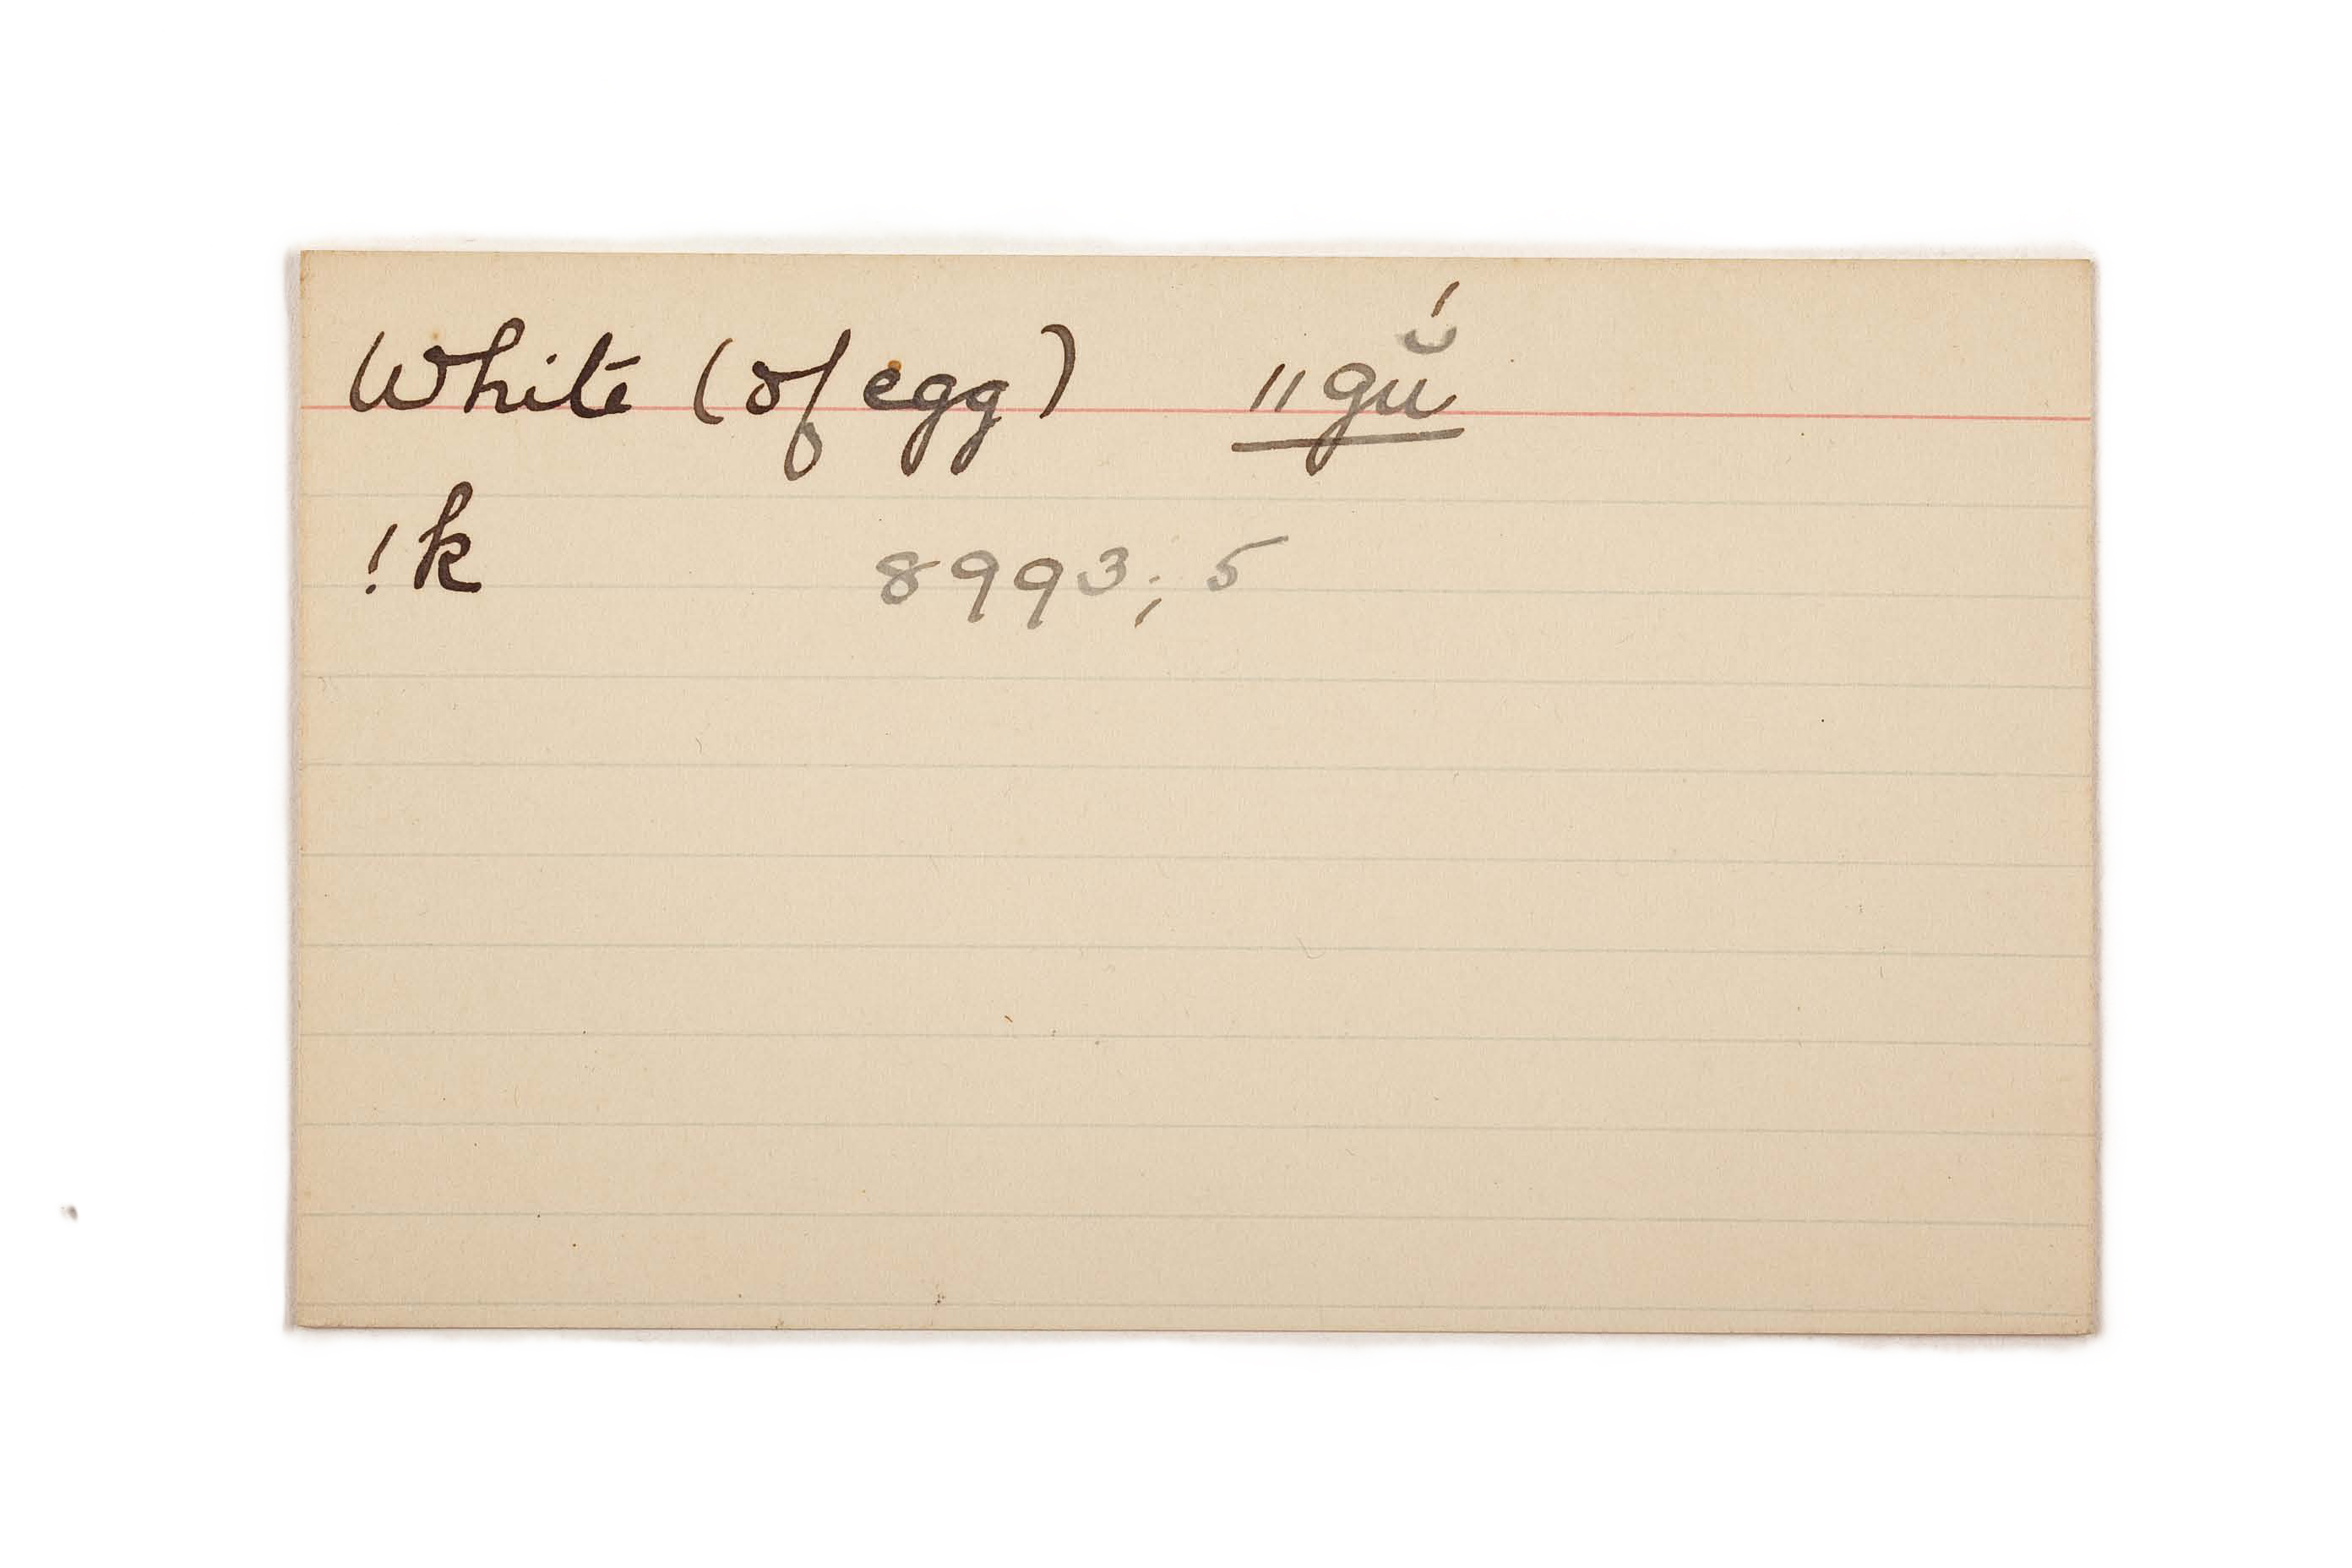 White (of egg) ǁgŭ́
!k 8993; 5